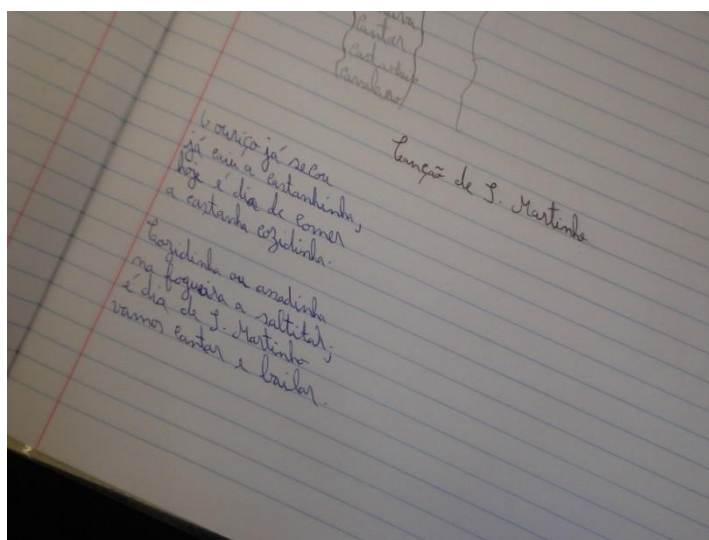 cantar
Canção de S. Martinho
O ouriço já secou
já caiu a castanhinha,
hoje é dia de comer
a castanha cozidinha.
Cozidinha ou assadinha
na fogueira a saltitar,
é dia de S. Martinho
vamos cantar e bailar.